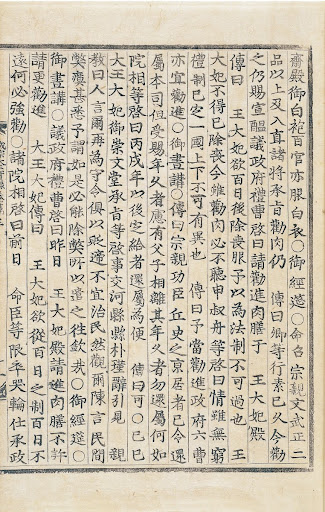 齋殿御白袍百官亦服白衣○御經筵○命召宗親文武正二
品以上及入直諸將承旨勸肉仍 傳曰卿等行素已久今勸
之仍賜宣醞議政府禮曹啓曰請勸進肉膳于 王大妃殿
傳曰 王大妃欲百日後除喪服予以爲法制不可過也 王
大妃不得已除喪今雖勸肉必不聽申叔舟等啓曰情雖無窮
禮制已定一國上下不可有異也 傳曰予當勸進政府六曹
亦宜勸進○御晝講○傳曰宗親功臣丘史之京居者已令還
屬本司但受賜年久者應有父子相離其年久者勿還屬何如
院相等啓曰丙戌年以後定給者還屬爲便 傳曰可○己巳
大王大妃御崇文堂承旨等啓事交河縣縣朴瑾辭引見 親
教曰人言爾再爲守令俱以貶遞不宜治民然觀爾陳言民間
弊瘼甚悉予謂如是必能除弊所以遣之往欽哉○御經筵○
御晝講○議政府禮曹啓曰昨日 王大妃殿請進肉膳不許
請更勸進 大王大妃傳曰 王大妃欲從百日之制百日不
遠何必强勸○諸院相啓曰前日 命臣等限卒哭輪仕承政